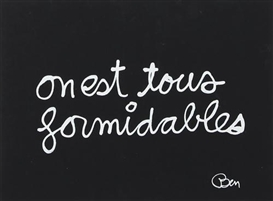 on est tous
formidables
Ben